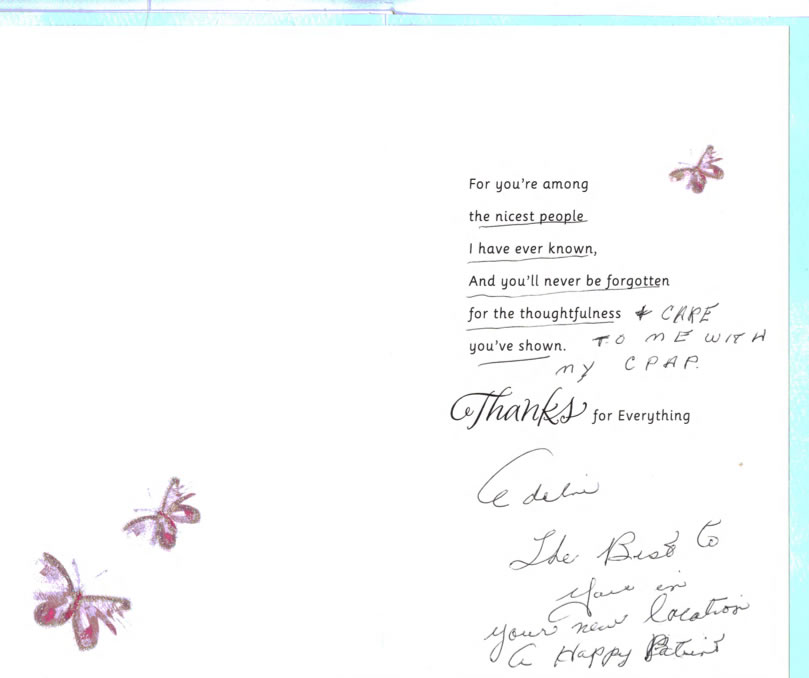 For you're among
the nicest people
I have ever known,
And you'll never be forgotten
for the thoughtfulness & CARE
you've shown. TO ME WITH
my CPAP.
Thanks for Everything
Adeline
The Best to
you in
your new location
A Happy Patient